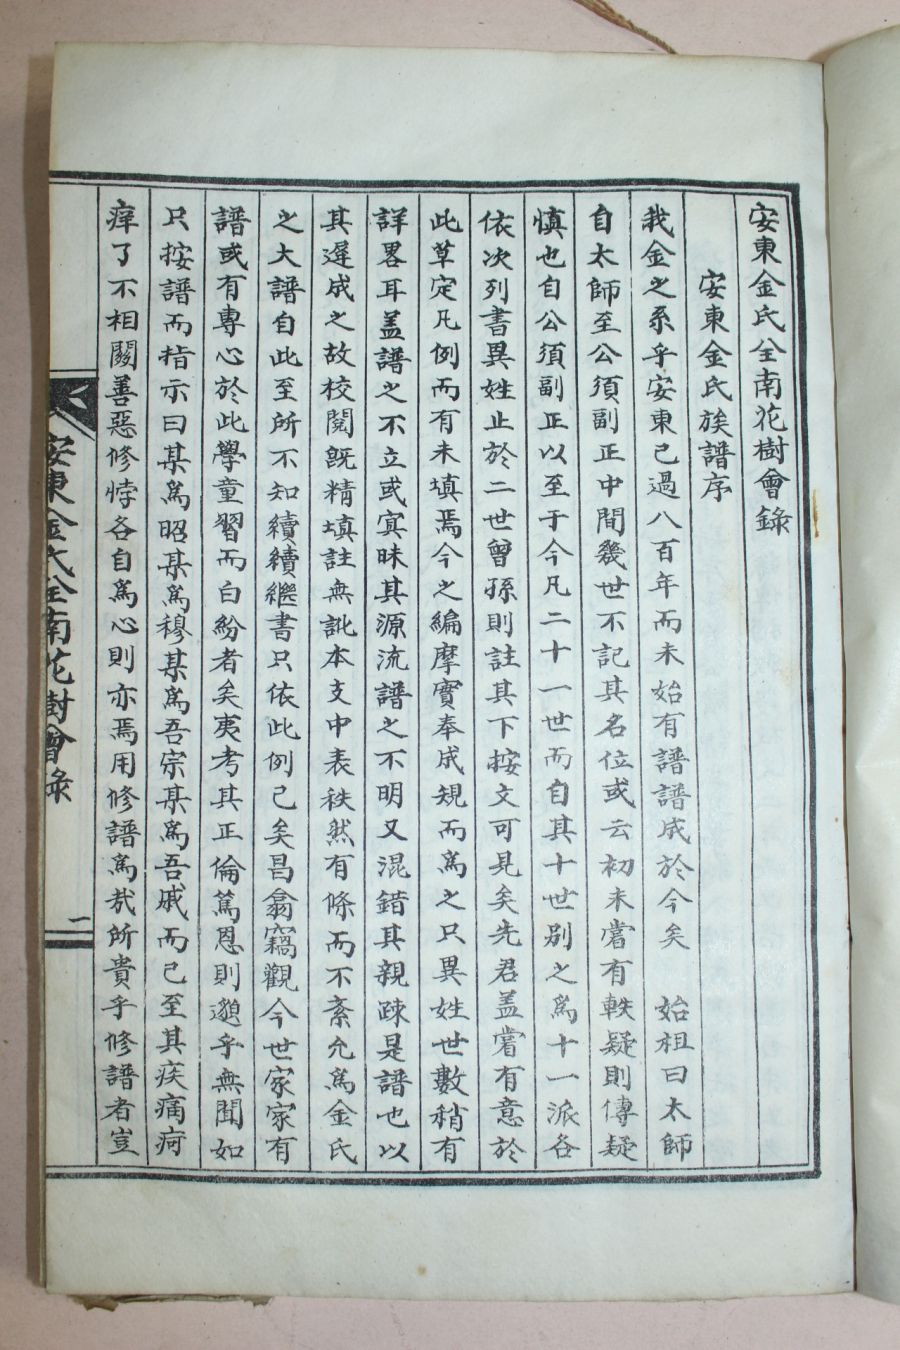 安東金氏全南花樹會錄
安東金氏族譜序
我金之系乎安東已過八百年而未始有譜譜成於今矣 始祖曰太師
自太師至公須副正中間幾世不記其名位或云初未嘗有軼疑則傳疑
慎也自公須副正以至于今凡二十一世而自其十世別之爲十一派各
依次列書異姓止於二世曾孫則註其下按文可見矣先君盖嘗有意於
此草定凡例而有未塡焉今之編摩實奉成規而爲之只異姓世數稍有
詳畧耳盖譜之不立或寘昧其源流譜之不明又混錯其親疎是譜也以
其遲成之故校閱旣精塡註無訛本支中表秩然有條而不紊允爲金氏
之大譜自此至所不知續續繼書只依此例已矣昌翕竊觀今世家家有
譜或有專心於此學童習而白紛者矣夷考其正倫篤恩則邈乎無聞如
只按譜而指示曰某爲昭某爲穆某爲吾宗某爲吾戚而已至其疾痛疴
痒了不相關善惡修悖各自爲心則亦焉用修譜爲㢤所貴乎修譜者豈
安東金氏全南花樹會錄
二